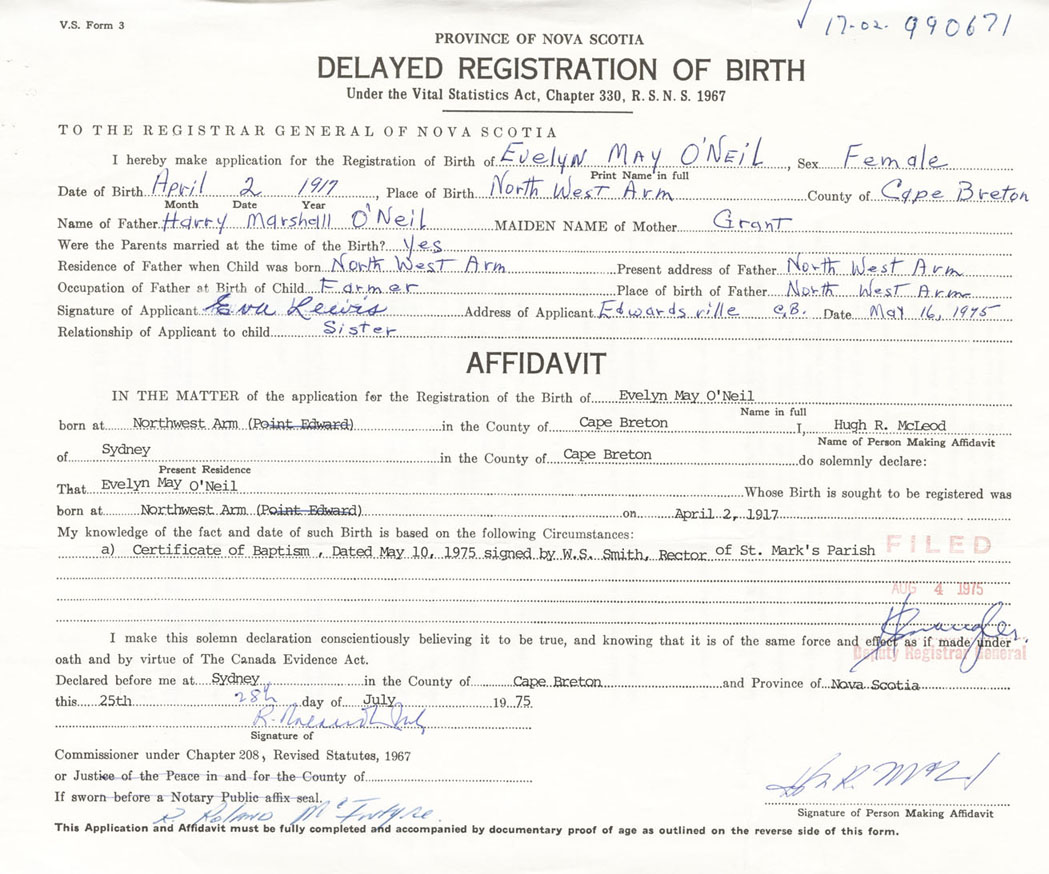 V.S. Form 3
17-02- 990671
PROVINCE OF NOVA SCOTIA
DELAYED REGISTRATION OF BIRTH
Under the Vital Statistics Act, Chapter 330, R. S. N. S. 1967
TO THE REGISTRAR GENERAL OF NOVA SCOTIA
I hereby make application for the Registration of Birth of Evelyn MAY O'NEIL, Sex Female
Print Name in full
Date of Birth April 2 1917, Place of Birth North West Arm County of Cape Breton
Month Date Year
Name of Father Harry Marshall O'Neil MAIDEN NAME of Mother Grant
Were the Parents married at the time of the Birth? yes
Residence of Father when Child was born North West Arm Present address of Father North West Arm
Occupation of Father at Birth of Child Farmer Place of birth of Father North West Arm
Signature of Applicant Eva Lewis Address of Applicant Edwardsville C.B. Date May 16, 1975
Relationship of Applicant to child Sister
AFFIDAVIT
IN THE MATTER of the application for the Registration of the Birth of Evelyn May O'Neil
Name in full
born at Northwest Arm (Point Edward) in the County of Cape Breton I, Hugh R. McLeod
Name of Person Making Affidavit
of Sydney in the County of Cape Breton do solemnly declare:
Present Residence
That Evelyn May O'Neil Whose Birth is sought to be registered was
born at Northwest Arm (Point Edward) on April 2, 1917
My knowledge of the fact and date of such Birth is based on the following Circumstances:
a) Certificate of Baptism , Dated May 10, 1975 signed by W.S. Smith, Rector of St. Mark's Parish
FILED
AUG 4 1975
I make this solemn declaration conscientiously believing it to be true, and knowing that it is of the same force and effect as if made under
Deputy Registrar General
oath and by virtue of The Canada Evidence Act.
Declared before me at Sydney in the County of Cape Breton and Province of Nova Scotia
this 25th 28th day of July 19 75
Signature of
Commissioner under Chapter 208, Revised Statutes, 1967
or Justice of the Peace in and for the County of
If sworn before a Notary Public affix seal.
R Roland McIntyre.
Signature of Person Making Affidavit
This Application and Affidavit must be fully completed and accompanied by documentary proof of age as outlined on the reverse side of this form.